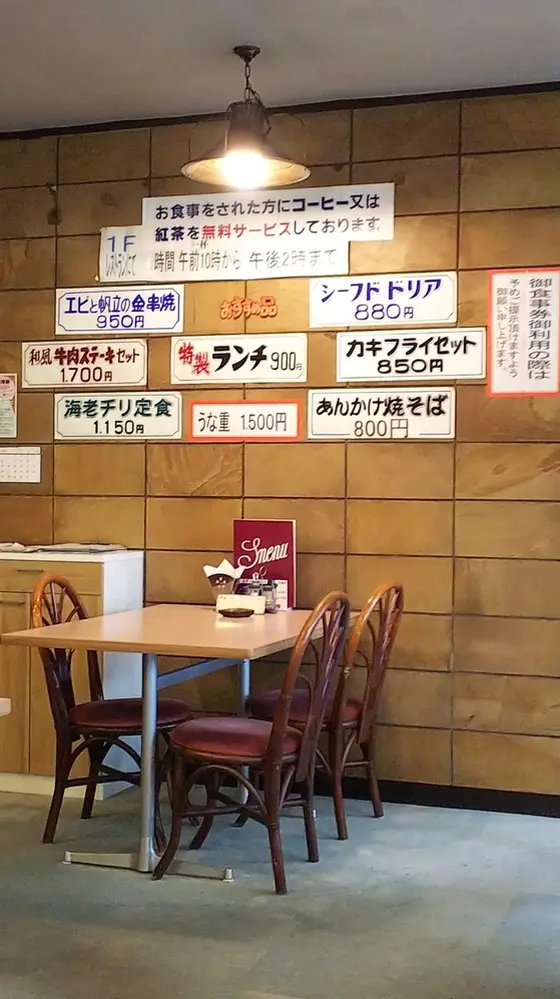 お食事をされた方にコーヒー又は
紅茶を無料サービスしております。
一杯
1F
レストランにて
時間 午前10時から 午後2時まで
おすすめ品
エビと帆立の金串焼
950円
シーフドドリア
880円
和風牛肉ステーキセット
1.700円
特製ランチ900円
カキフライセット
850円
海老チリ定食
1.150円
うな重 1.500円
あんかけ焼そば
800円
御食事券御利用の際は
予めご提示頂けますよう
御願い申し上げます。
menu